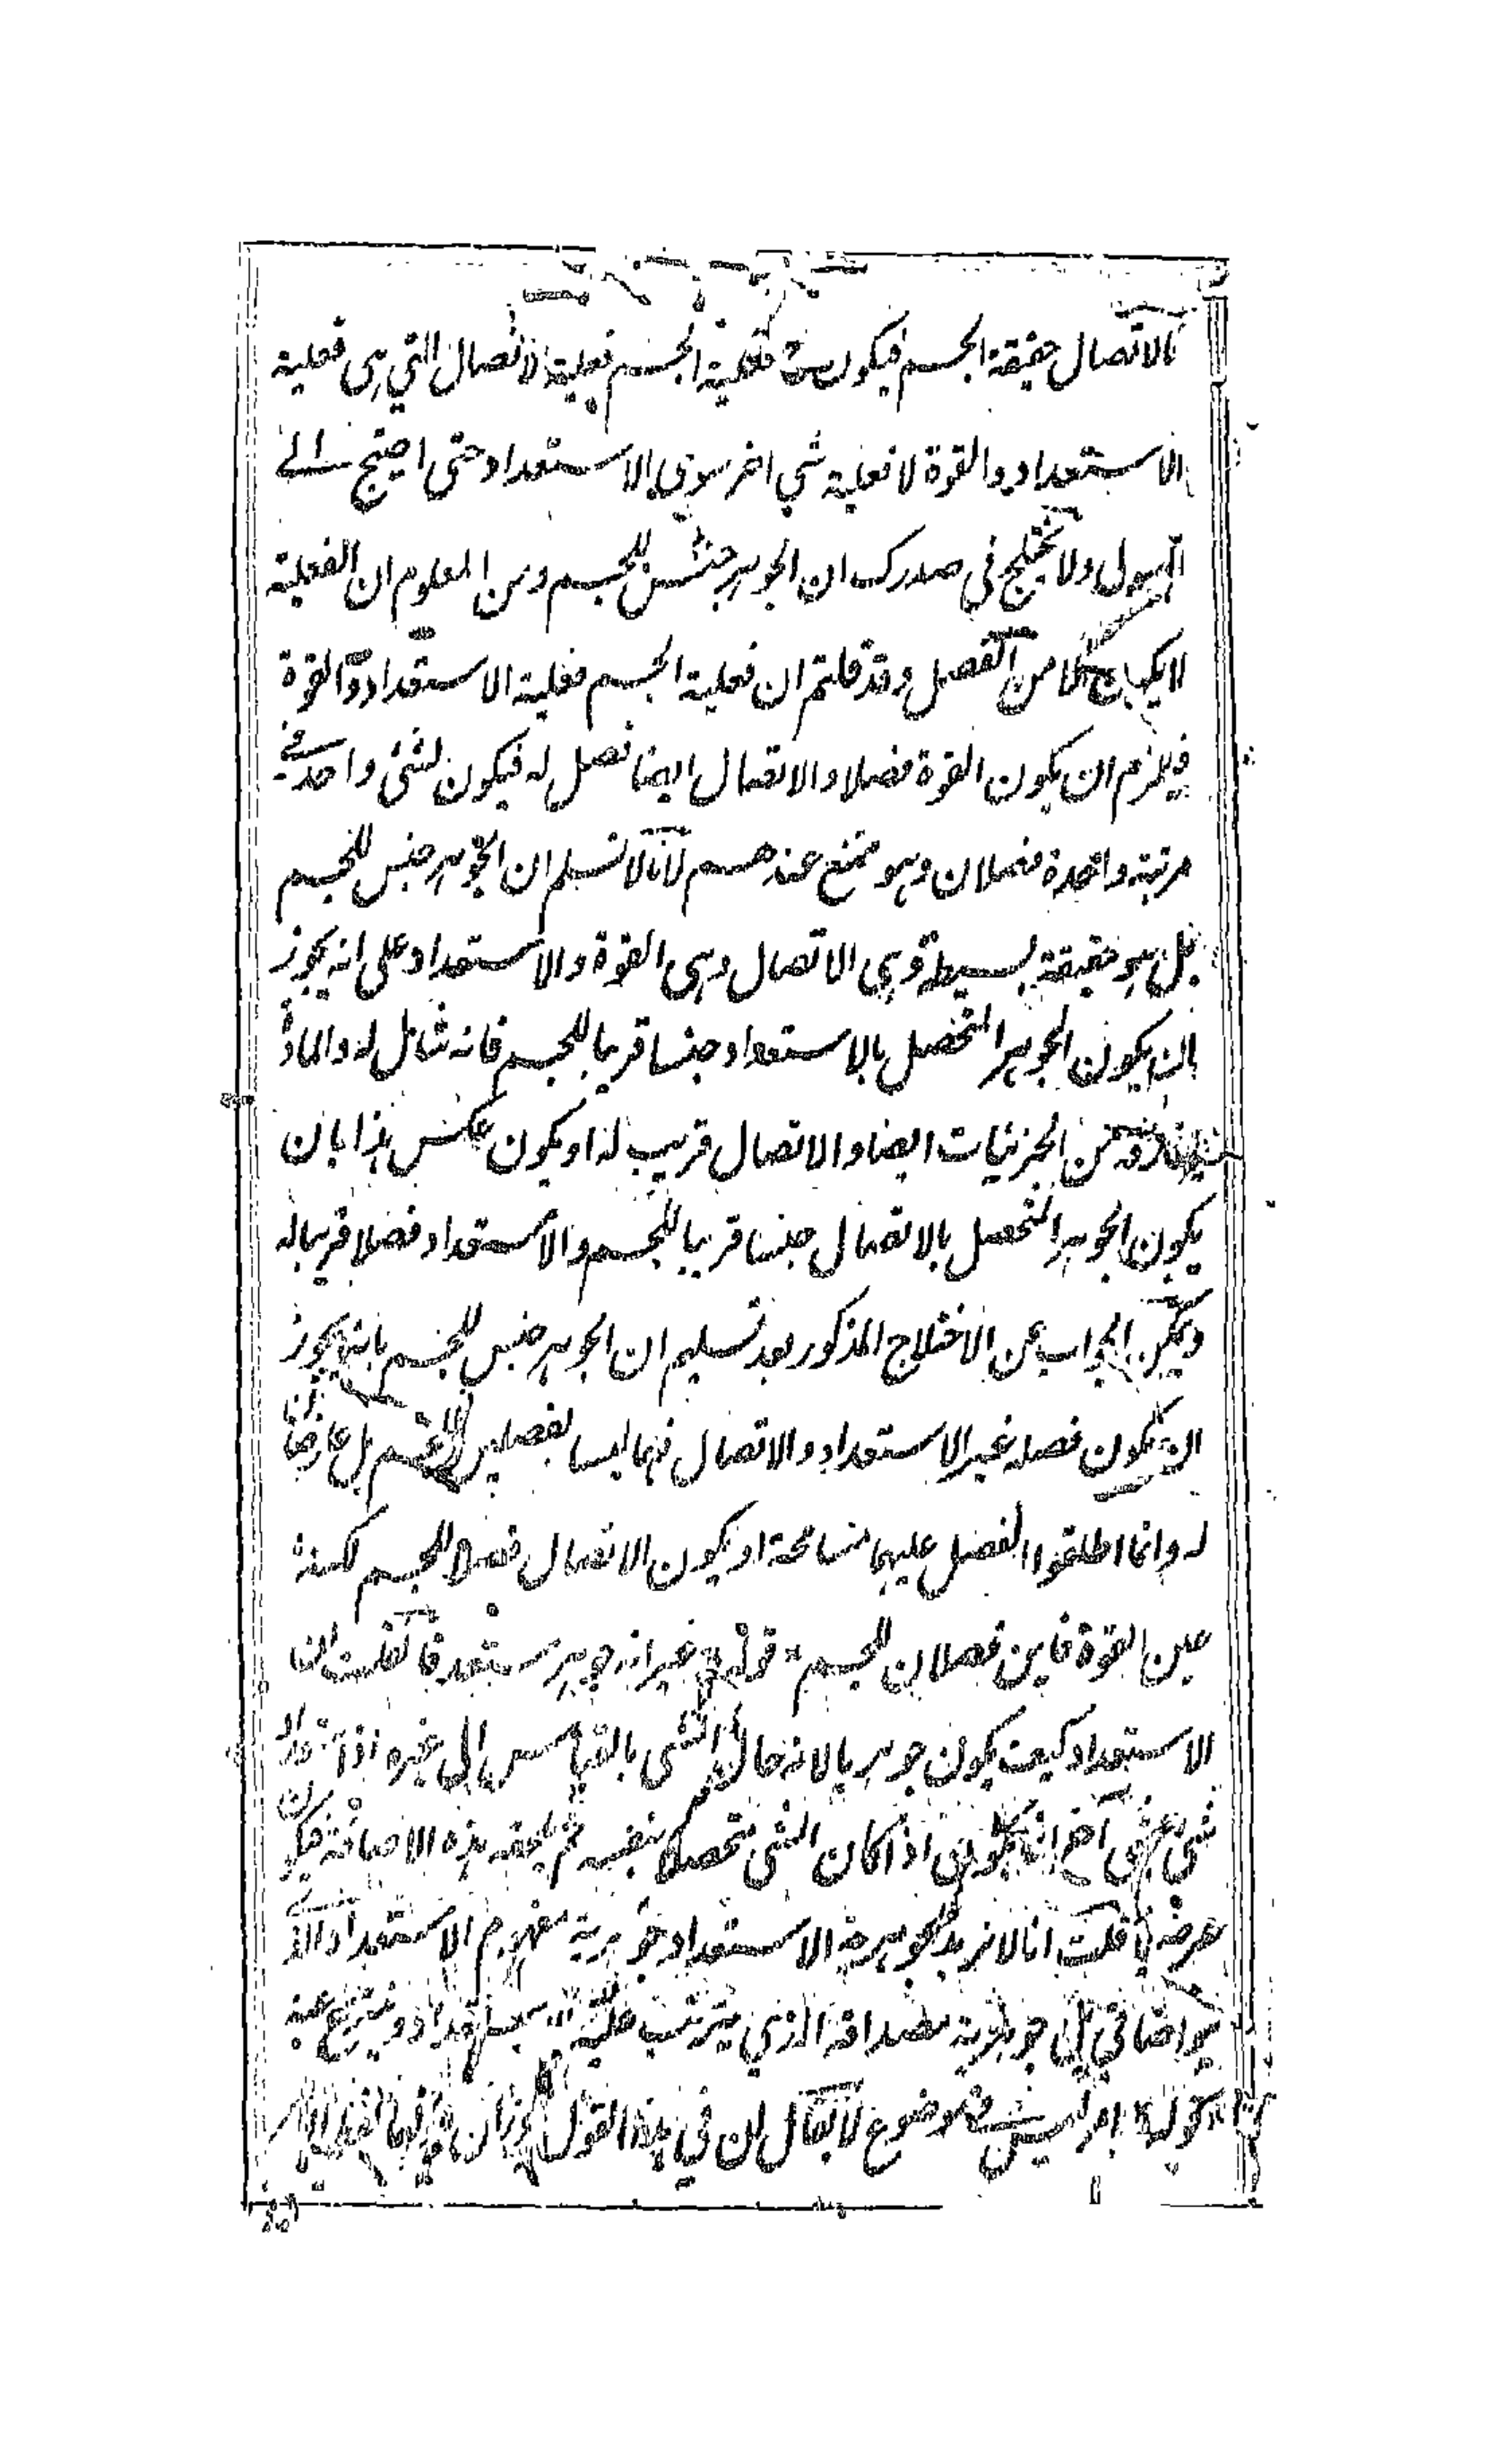 كالاتصال حقيقة الجسم فيكون فعلية الجسم فعلية الاتصال التي هي فعلية
الاستعداد والقوة لا فعلية شي اخر سوى الاستعداد حتى احتيج الى
الهيولى ولا يختلج في صدرك ان الجوهر جنس للجسم ومن المعلوم ان الفعلية
لا يكون الا من الفصل وقد قلتم ان فعلية الجسم فعلية الاستعداد والقوة
فيلزم ان يكون القوة فصلا والاتصال ايضا فصل له فيكون لشئ واحد في
مرتبة واحدة فصلان وهو ممتنع عندهم لانا لا نسلم ان الجوهر جنس للجسم
بل هو حقيقة بسيطة وهي الاتصال وهي القوة والاستعداد على انه يجوز
ان يكون الجوهر المتحصل بالاستعداد جنسا قريبا للجسم فانه شامل له والمادة
من الجزئيات ايضا والاتصال قريب له او يكون عكس هذا بان
يكون الجوهر المتحصل بالاتصال جنسا قريبا للجسم والاستعداد فصلا قريبا له
ويمكن الجواب عن الاختلاج المذكور بعد تسليم ان الجوهر جنس للجسم بانه يجوز
ان يكون فصله غير الاستعداد والاتصال فهما ليسا بفصلين للجسم بل عارضان
له وانما اطلقوا الفصل عليهما مسامحة او يكون الاتصال فصلا للجسم لكنه
عين القوة فاين فصلان للجسم قوله غير انه جوهر مستعد فان قلت ان
الاستعداد كيف يكون جوهريا لانه حال الشي بالقياس الى غيره اذ استعداد
شي شي آخر انما يكون اذا كان الشي متحصلا بنفسه ثم يلحقه هذه الاضافة فيكون
عرضا قلت انا لا نريد بجوهرية الاستعداد جوهرية مفهوم الاستعداد الذي
هو اضافي بل جوهرية مصداقه الذي يترتب عليه الاستعداد وينتزع عنه
قوله امر ليس في موضوع لا يقال ان في هذا القول